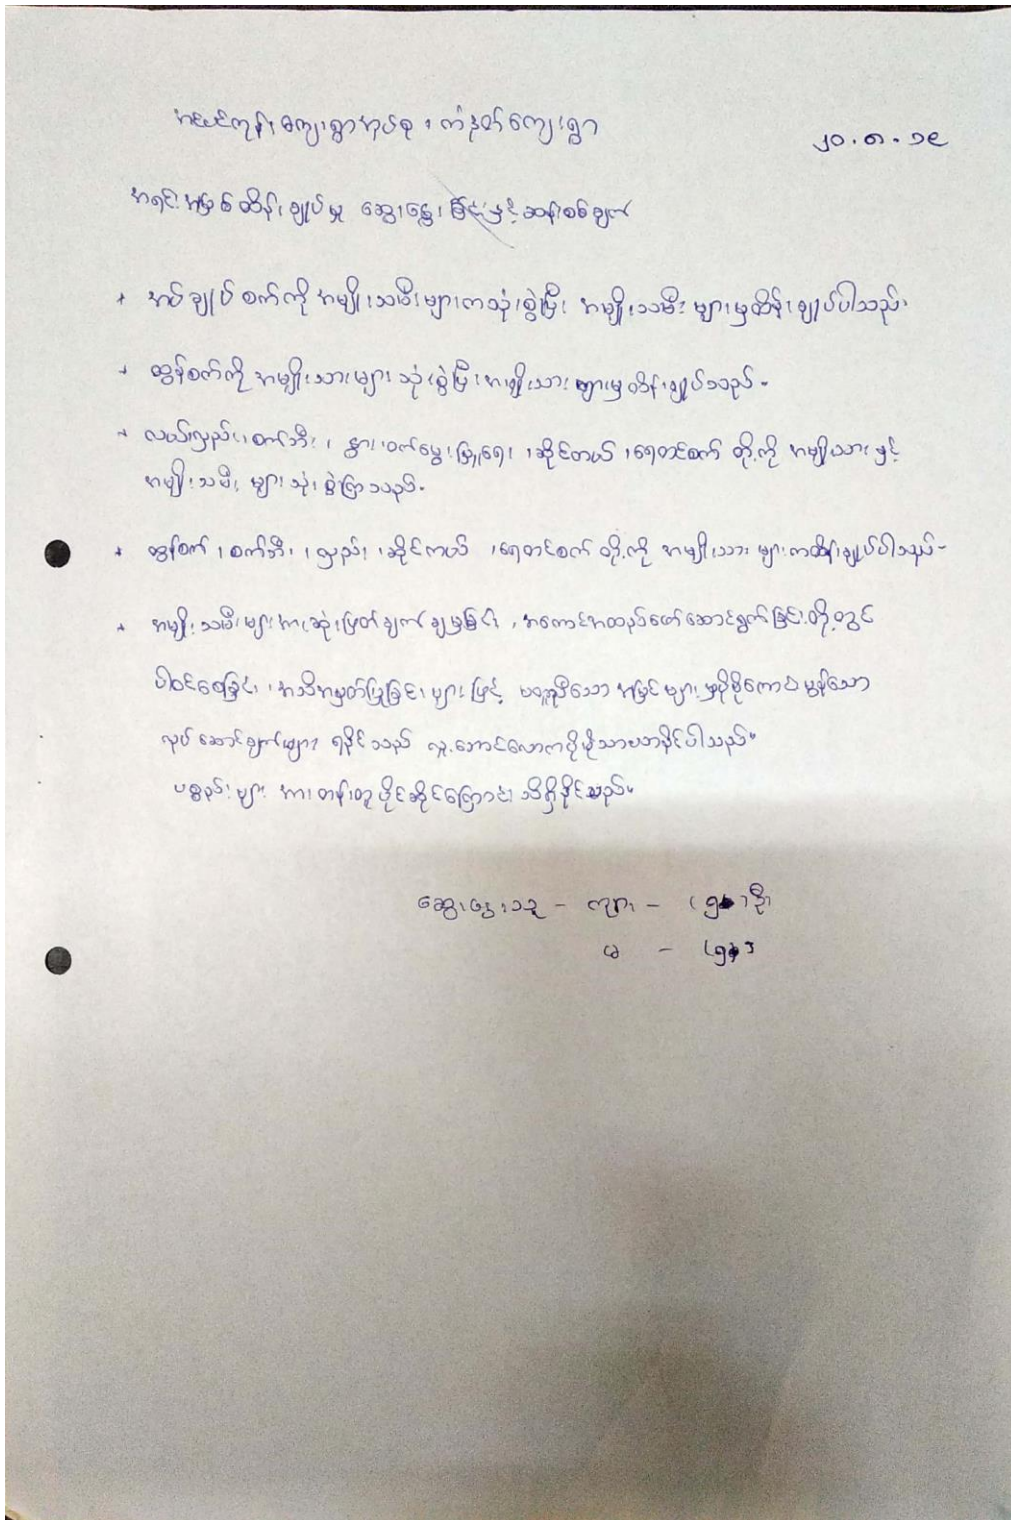 ကျေးရွာအုပ်စု ၊ ကံနုတ်ကျေးရွာ
၂၀.၈.၁၉
အရင်းအမြစ်ထိန်းချုပ်မှု ဆွေးနွေးခြင်းနှင့်ဆန်းစစ်ချက်
* အပ်ချုပ်စက်ကို အမျိုးသမီးများကသုံးစွဲပြီး အမျိုးသမီးများမှထိန်းချုပ်ပါသည်။
* ထွန်စက်ကို အမျိုးသားများ သုံးစွဲပြီး အမျိုးသားများမှထိန်းချုပ်သည်။
* လယ်၊လှည်း၊ စက်ဘီး ၊ နွား ၊ ဝက်မွေးမြူရေး ၊ ဆိုင်ကယ် ၊ ရေတင်စက် တို့ကို အမျိုးသားနှင့်
အမျိုးသမီး များသုံးစွဲကြသည်။
* ထွန်စက် ၊ စက်ဘီး ၊ လှည်း ၊ ဆိုင်ကယ် ၊ ရေတင်စက် တို့ကို အမျိုးသားများကထိန်းချုပ်ပါသည်။
* အမျိုးသမီးများအားဆုံးဖြတ်ချက်ချမှုခြင်း ၊ အကောင်အထည်ဖော်ဆောင်ရွက်ခြင်းတို့တွင်
ပါဝင်စေခြင်း ၊ အသိအမှတ်ပြုခြင်းများဖြင့် မတူညီသော အမြင်များမှပိုမိုကောင်းမွန်သော
လုပ်ဆောင်ချက်များ ရနိုင်သည် လူ့ဘောင်လောကပိုမိုသာယာနိုင်ပါသည်။
ပစ္စည်းများ အားတန်းတူပိုင်ဆိုင်ကြောင်း သိရှိနိုင်သည်။
ဆွေးနွေးသူ - ကျား - ( ) ဦး
မ - ( )